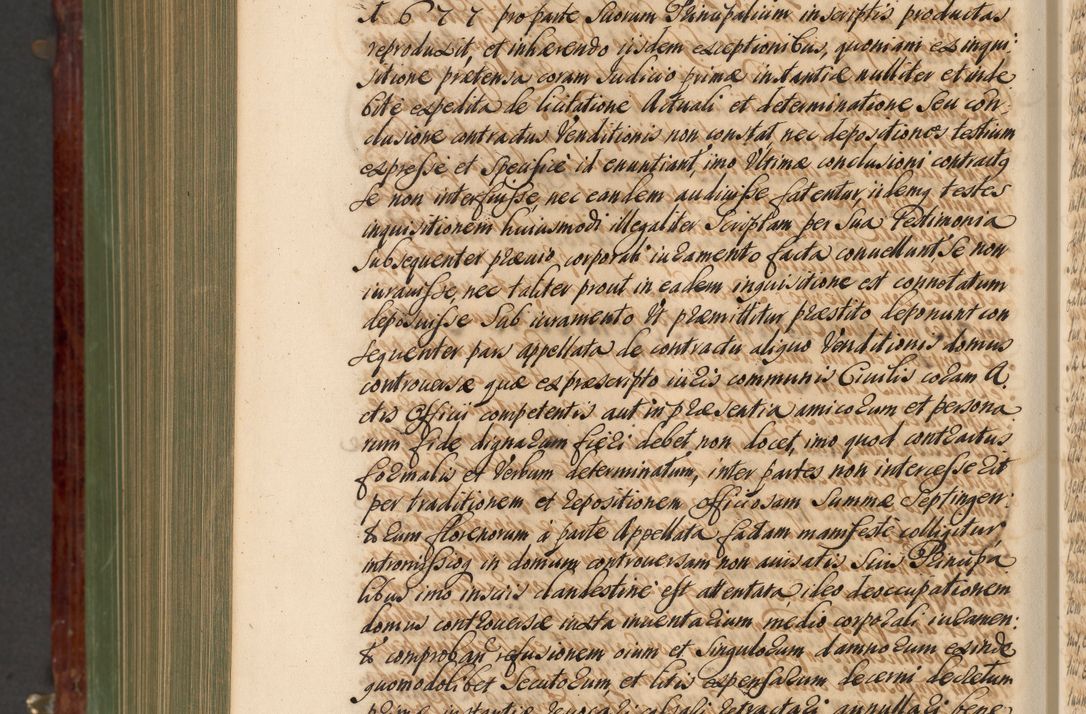 1 6 7 7 pro parte Suorum Principalium in scriptis productas
reproduxit, et inhærendo ijsdem exceptionibus, quoniam ex inqui:
sitione prætensa coram Judicio primæ instantiæ nulliter et inde
bite expedita de licitatione Actuali et determinatione seu con
clusione contractus Venditionis non constat, nec depositiones testium
expresse et specifice id enuntiant, imo Ultimæ conclusioni contractq
se non interfuisse, nec eandem audivisse fatentur, iidemq testes
inquisitionem huiusmodi illegaliter scriptam per sua Testimonia
subsequenter prævio corporali iuramento facta convellunt se non
iuravisse, nec taliter prout in eadem inquisitione est connotatum
deposuisse sub iuramento Ut præmittitur præstito deponunt con
sequenter pars appellata de contractu aliquo Venditionis domus
controversæ quæ ex præscripto iuris communis Civilis coram A:
ctis Officii competentis aut in præsentia amicorum et persona
rum fide dignarum fieri debet, non docet, imo quod contractus
formalis et Verbum determinatum, inter partes non intercesserit
per traditionem et repositionem Officiosam Summæ Septingen:
torum florenorum à parte Appellata factam manifeste colligitur,
intromissioq in domum controversam non avisatis suis Principa
libus imo insciis clandestine est attentata, ideo deoccupationem
domus controversæ iuxta inventarium medio corporali iuramen:
to comproban refusionem oium et singulorum damnorum exinde
quomodolibet secutorum, et litis expensarum decerni decretum
primæ instantiæ revocari cassari retractari annullari bene